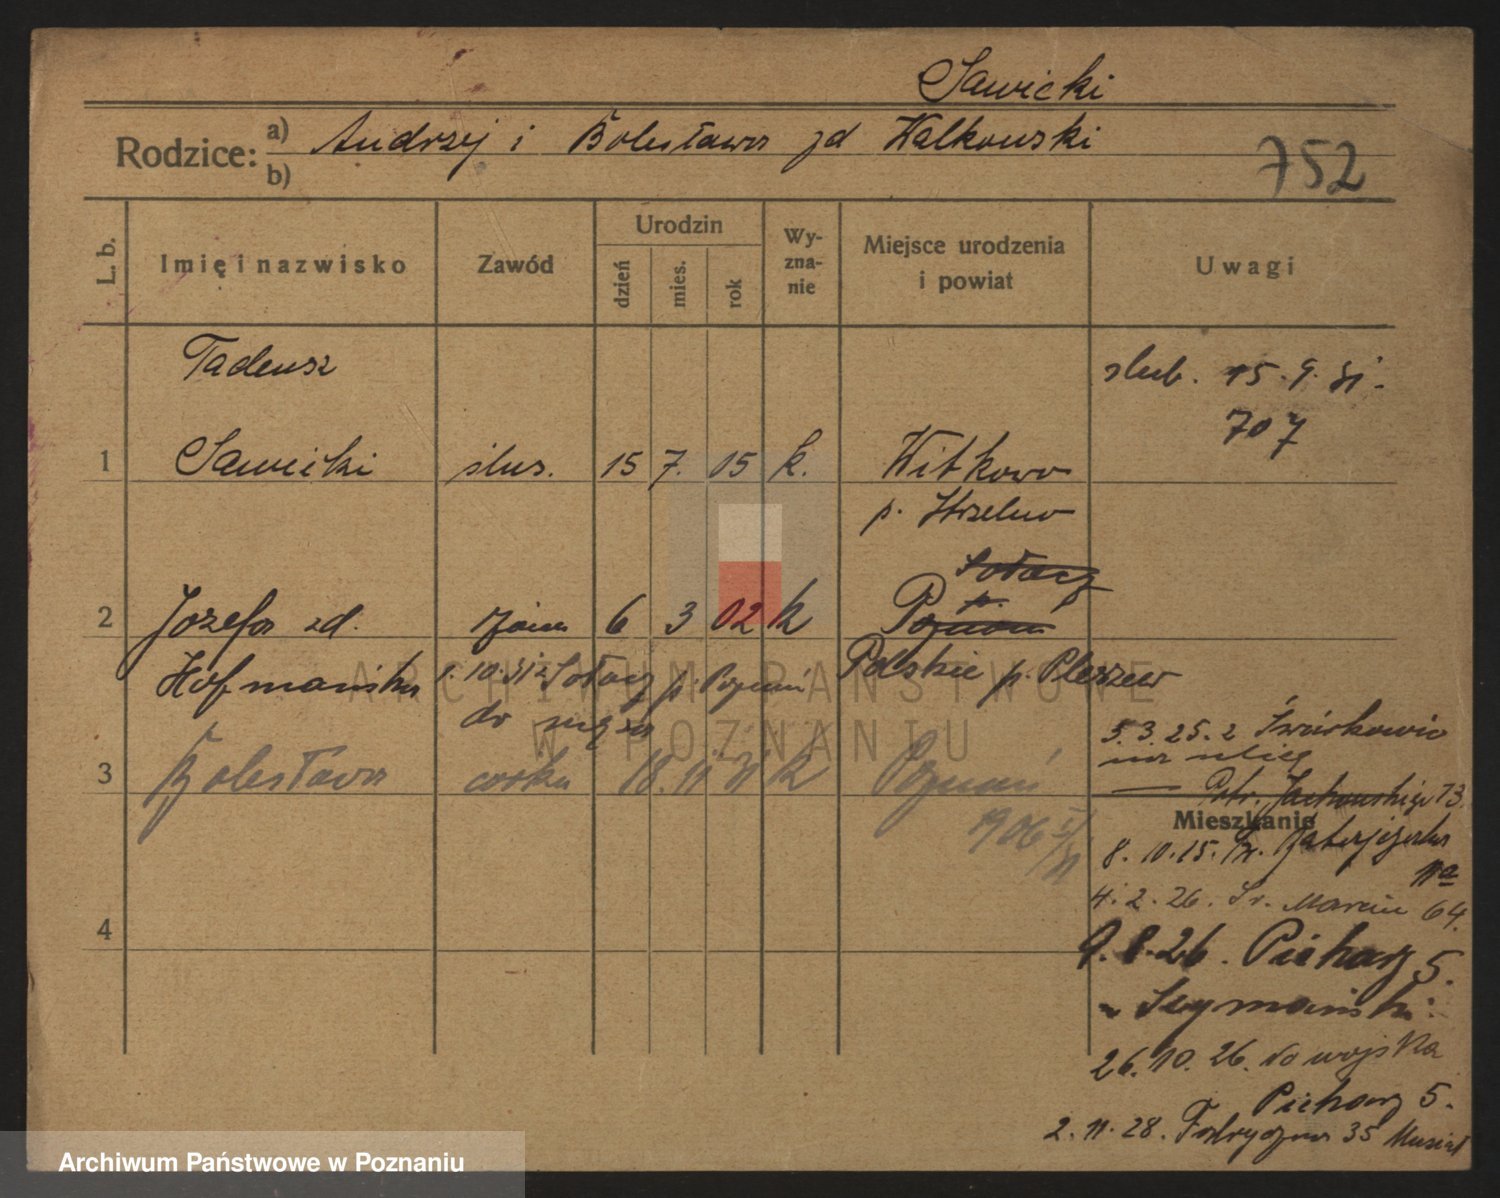 Sawicki
Rodzice: a) Andrzej i Bolesława zd Walkowski
b)
752
L. b. Imię i nazwisko Zawód Urodzin dzień mies. rok Wy-zna-nie Miejsce urodzenia i powiat Uwagi
Tadeusz ślub. 15.9.31.
707
1 Sawicki ślus. 15 7. 05 k. Witkowo
p. Strzelno
Sołacz
p.
2 Józefa zd. 6 3 02 k Poznań
Hofmańska 1.10.31 z Sołacz p. Poznań Polskie p. Pleszew
do męża
5.3.25. z
3 Bolesława córka 18. 11 31 k Poznań
1906
Mieszkanie
8.10.25.
11a
4.2.26. Św. Marcin 64.
4
9.8.26. Piekary 5.
Szymański
26.10.26. do wojska
Piekary 5.
2.11.28. Fabryczna 35 Musiał
ARCHIWUM PAŃSTWOWE
W POZNANIU
Archiwum Państwowe w Poznaniu